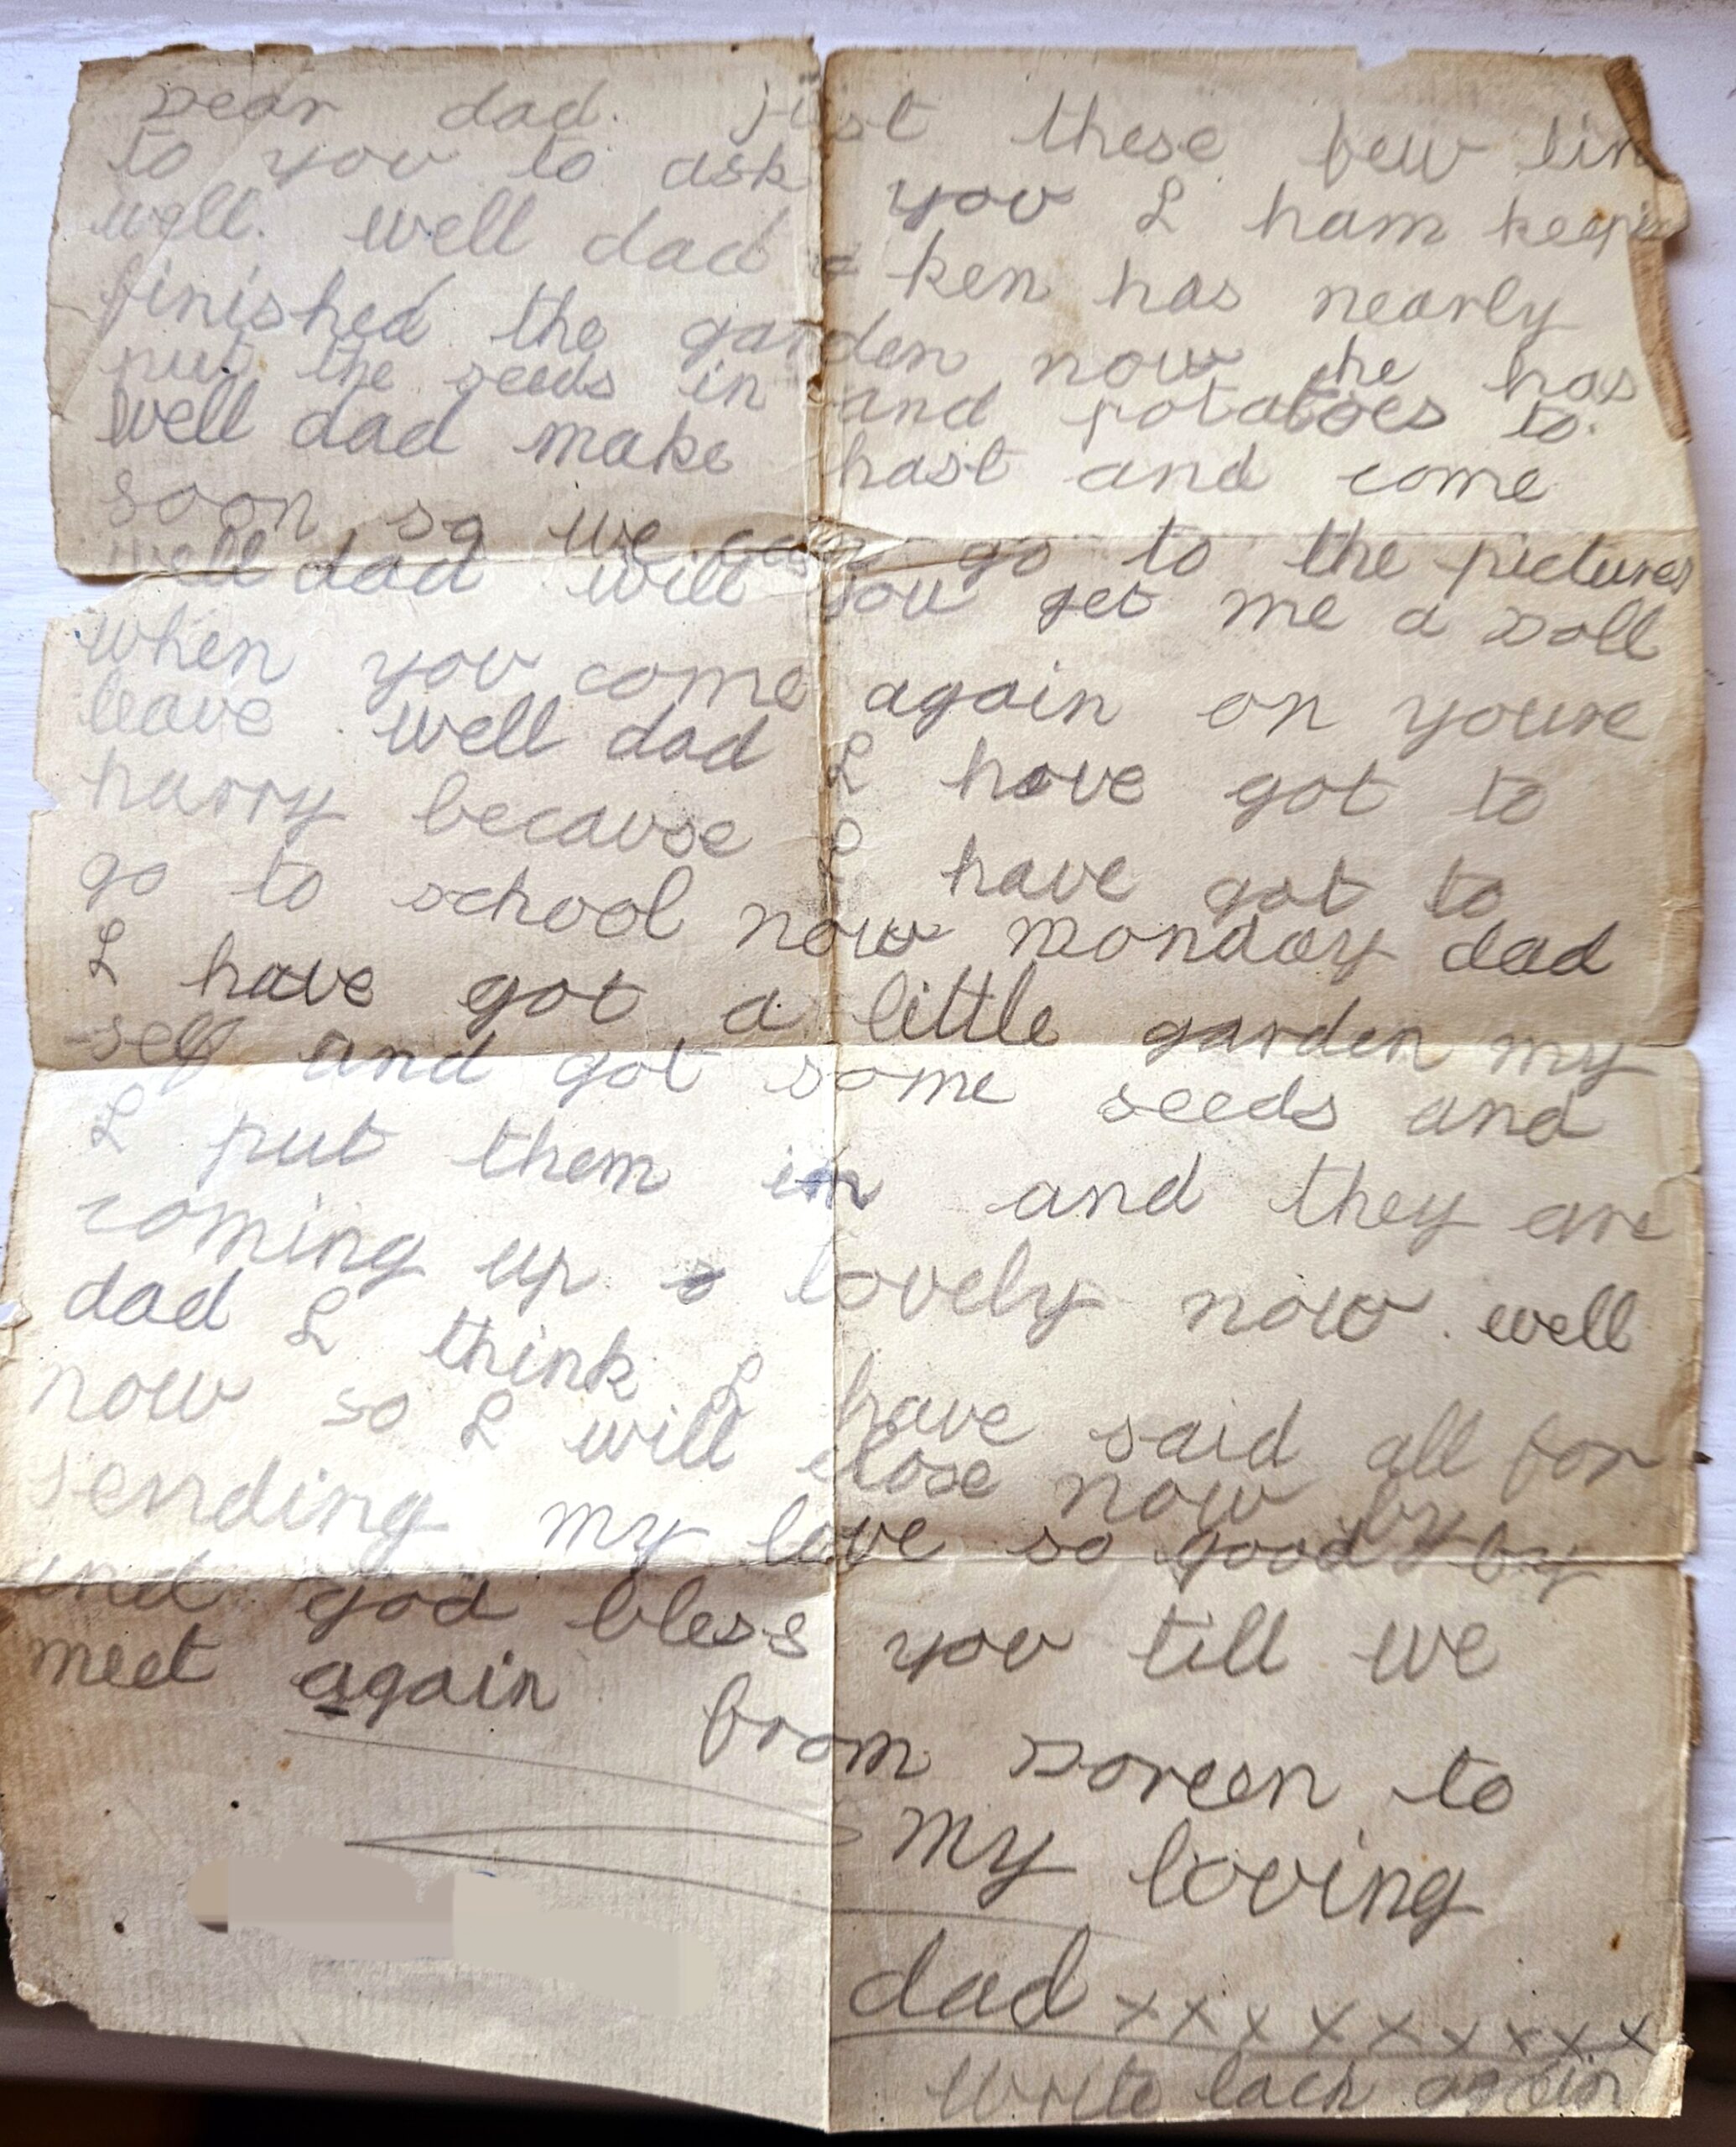 Dear dad. just these few lin
to you to ask you I ham keepin
well. well dad ken has nearly
finished the garden now he has
put the seeds in and potatoes to.
well dad make hast and come
soon so we can go to the pictures
well dad will you get me a Doll
when you come again on youre
leave. well dad I have got to
harry because I have got to
go to school now Monday dad
I have got a little garden my
self and got some seeds and
I put them in and they are
coming up lovely now. well
dad I think I have said all for
now so I will close now by
sending my love so good by
and god bless you till we
meet again from Doreen to
my loving
dad xxxxxxxxx
write back again